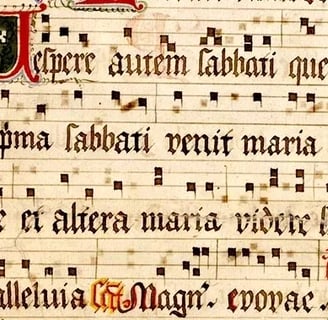 Vespere autem sabbati que
prima sabbati venit maria
et altera maria videre
alleluia Magn. evovae.